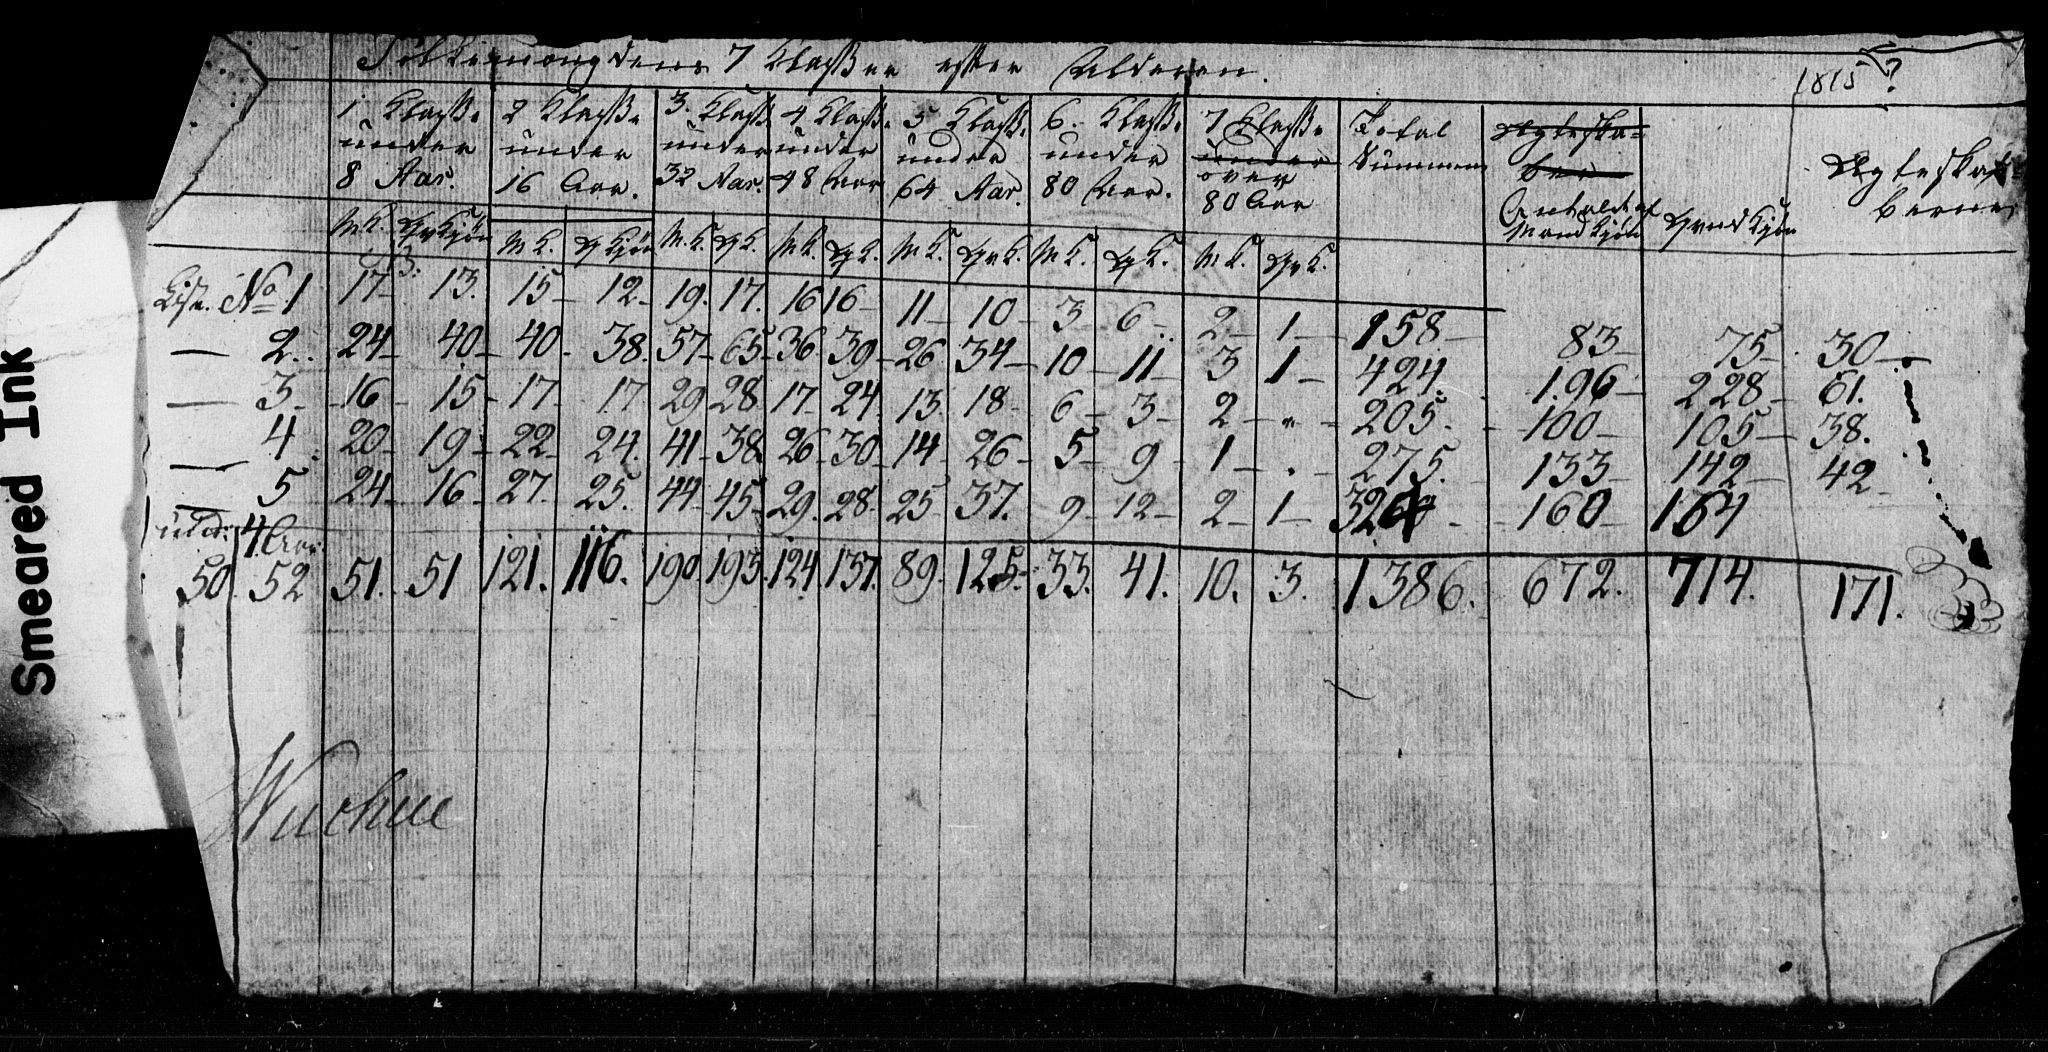 Folkemængdens 7 Klasser efter Alderen.
1815?
1 Klasse under 8 Aar. | 2 Klasse under 16 Aar. | 3. Klasse under 32 Aar. | 4 Klasse under 48 Aar | 5 Klasse under 64 Aar. | 6. Klasse under 80 Aar. | 7 Klasse under over 80 Aar | Total Summen | Ægteska=ber Antallet af Mandkjøn | Qvindkjøn | Ægteskaberne
M.K. Qv.Kjøn | M K. Q Kjøn | M.K. Q.K. | M.K. Q.K. | M K. Qv.K. | M K. Q K. | M K. Qv K.
Liste No 1 17 13. 15 12 19. 17. 16 16 11 10 3 6 2 1 158 83 75 30
2. 24 40 40 38. 57 65 36 39 26 34 10 11 3 1 424. 196 228 61.
3 16 15 17 17 29 28 17 24 13 18 6 3 2 " 205. 100 105 38.
4. 20 19 22 24. 41 38. 26 30 14 26 5 9 1 . 275. 133 142 42
5 24 16 27. 25. 44 45 29. 28 25 37. 9 12 2 1 324 160 164
under 4 Aar
50. 52 51. 51 121. 116. 190. 193. 124. 137. 89. 125. 33. 41. 10. 3. 1386. 672. 714. 171.
Smeared Ink